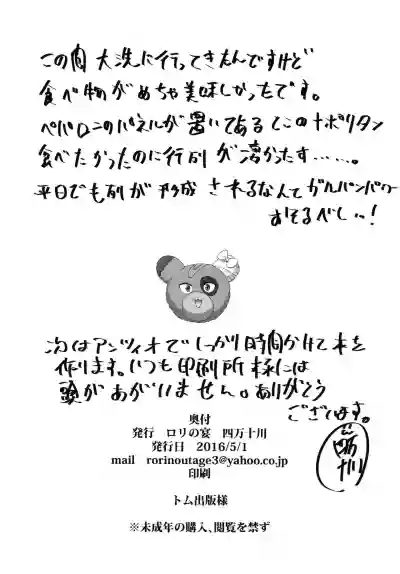 この間 大洗に行ってきたんですけど
食べ物がめちゃ美味しかったです。
ペパロニのパネルが置いてあるとこのナポリタン
食べたかったのに行列が凄かったす……。
平日でも列が形成されるなんてガルパンパワー
おそるべしぃ!
次はアンツィオでしっかり時間かけて本を
作ります。いつも印刷所様には
頭があがりません。ありがとう
ございます。
四万十川
奥付
発行 ロリの宴 四万十川
発行日 2016/5/1
mail rorinoutage3@yahoo.co.jp
印刷
トム出版様
※未成年の購入、閲覧を禁ず